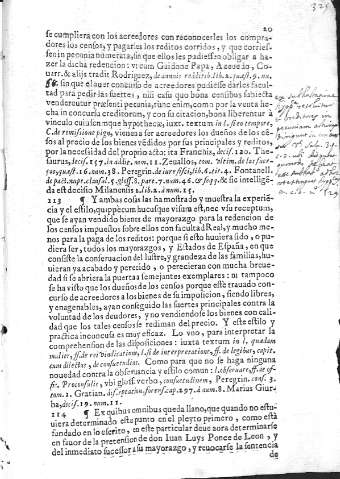 20
se cumpliera con los acreedores con reconocerles los compra-
dores los censos, y pagarles los reditos corridos, y que corries-
sen in peonia numerata, sin que ellos les pudiessen obligar a ha-
zer la dicha redencion: vt cum Guidone Papa, Azeuedo, Co-
uarr. & alijs tradit Rodriguez, de annuis reditib. lib. 2. quæst. 9. nu.
56. sin que el auer concurso de acreedores pudiesse darles facul-
tad para pedir las suertes, nisi casu quo bona censibus subiecta
venderentur præsenti pecunia, tunc enim, como por la venta he-
cha in concursu creditorum, y con subhastacion, bona liberentur à
vinculo cuiuscunque hypothecæ, iuxta textum in l. si eo tempore,
C. de remissione pign. vienen à ser acreedores los dueños de los cē-
sos al precio de los bienes vēdidos por sus principales y reditos,
por la necessidad del proprio acto: ita Franchis, decis. 120. The-
saurus, decis. 157. in addit. num. 11. Zeuallos, com.
quæst. 16. num. 38. Peregrin. de iure fisci, lib. 6. tit. 4. Fontanell.
de pact. nupt. clausul. 5. gloss. 8. part. 7. num. 46. & seqq. & sic intelligē-
da est decisio Milanensis 2. lib. 2. num. 15.
113 ¶ Y ambas cosas las ha mostrado y muestra la experiē-
cia y el estilo, quippe cum hucusque visum est, nec vsu receptum,
que se ayan vendido bienes de mayorazgo para la redencion de
los censos impuestos sobre ellos con facultad Real, y mucho me-
nos para la paga de los reditos: porque si esto huuiera sido, o pu-
diera ser, todos los mayorazgos, y Estados de España, en que
consiste la conseruacion del lustre, y grandeza de las familias, hu-
uieran ya acabado y perecido, o perecieran con mucha breue-
dad si se abriera la puerta a semejantes exemplares: ni tampoco
se ha visto que los dueños de los censos porque esté trauado con-
curso de acreedores a los bienes de su imposicion, siendo libres,
y enagenables, ayan conseguido las suertes principales contra la
voluntad de los deudores, y no vendiendose los bienes con cali-
dad que los tales censos se rediman del precio. Y este estilo y
practica inconcusa es muy eficaz. Lo vno, para interpretar la
comprehension de las disposiciones: iuxta textum in l. quædam
mulier, ff. de rei vindicatione, l. si de interpretatione, ff. de legibus, capit.
cum dilectus, de consuetudine. Como para que no se haga ninguna
nouedad contra la obseruancia y estilo comun: l. obseruare, ff. de of-
fic. Proconsulis, vbi gloss. verbo, consuetudinem, Peregrin. cons. 3.
tom. 1. Gratian. disceptation. forens. cap. 297. à num. 8. Marius Giur-
ba, decis. 19. num. 11.
114 ¶ Ex quibus omnibus queda llano, que quando no estu-
uiera determinado este punto en el pleyto primero, como está
fundado en lo escrito, en este particular deue aora determinarse
en fauor de la pretension de don Iuan Luys Ponce de Leon, y
del inmediato sucessor a su mayorazgo, y reuocarse la sentencia
de